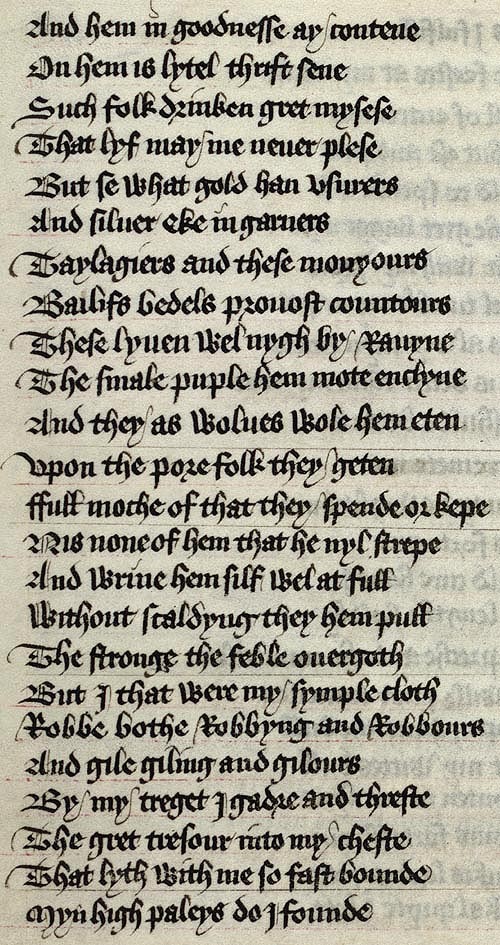 And hem in goodnesse ay contene
On hem is lytel thrift sene
Such folk drinken gret mysese
That lyf may me neuer plese
But se what gold han vsurers
And siluer eke in garners
Taylagiers and these monyours
Bailifs bedels prouost countours
These lyuen wel nygh by Rauyne
The smale puple hem mote enclyne
And they as wolues wole hem eten
Vpon the pore folk they geten
ffull moche of that they spende or kepe
Nis none of hem that he nyl strepe
And wrine hem silf wel at full
Without scaldyng they hem pull
The stronge the feble ouergoth
But I that were my symple cloth
Robbe bothe Robbyng and Robbours
And gile giling and gilours
By my treget I gadre and threste
The gret tresour into my cheste
That lyth with me so fast bounde
Myn high paleys do I founde